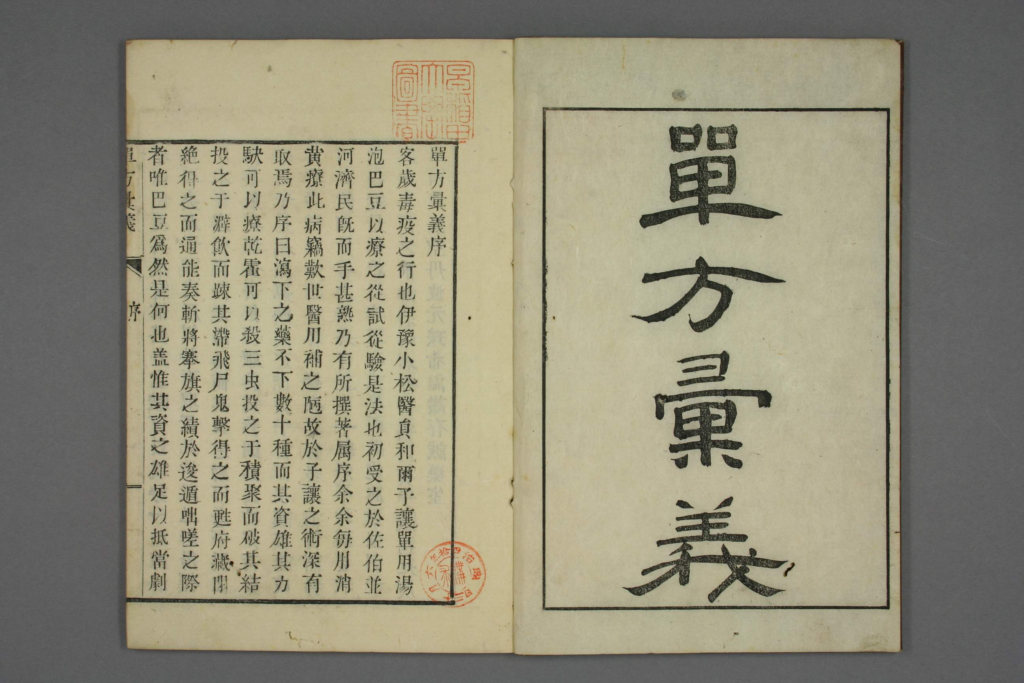 單方彙義
單方彙義序
客歲毒疫之行也伊豫小松醫員和爾子讓單用湯
泡巴豆以療之從試從驗是法也初受之於佐伯並
河濟民旣而手甚熟乃有所撰著属序余余每用消
黄療此病竊歎世醫用補之陋故於子讓之術深有
取焉乃序曰瀉下之藥不下數十種而其資雄其力
駃可以療乾霍可以殺三虫投之于積聚而破其結
投之于澼飲而疎其滯飛尸鬼擊得之而甦府藏閉
絶得之而通能奏斬將搴旗之績於逡遁咄嗟之際
者唯巴豆爲然是何也盖惟其資之雄足以抵當劇
單方彙義
序